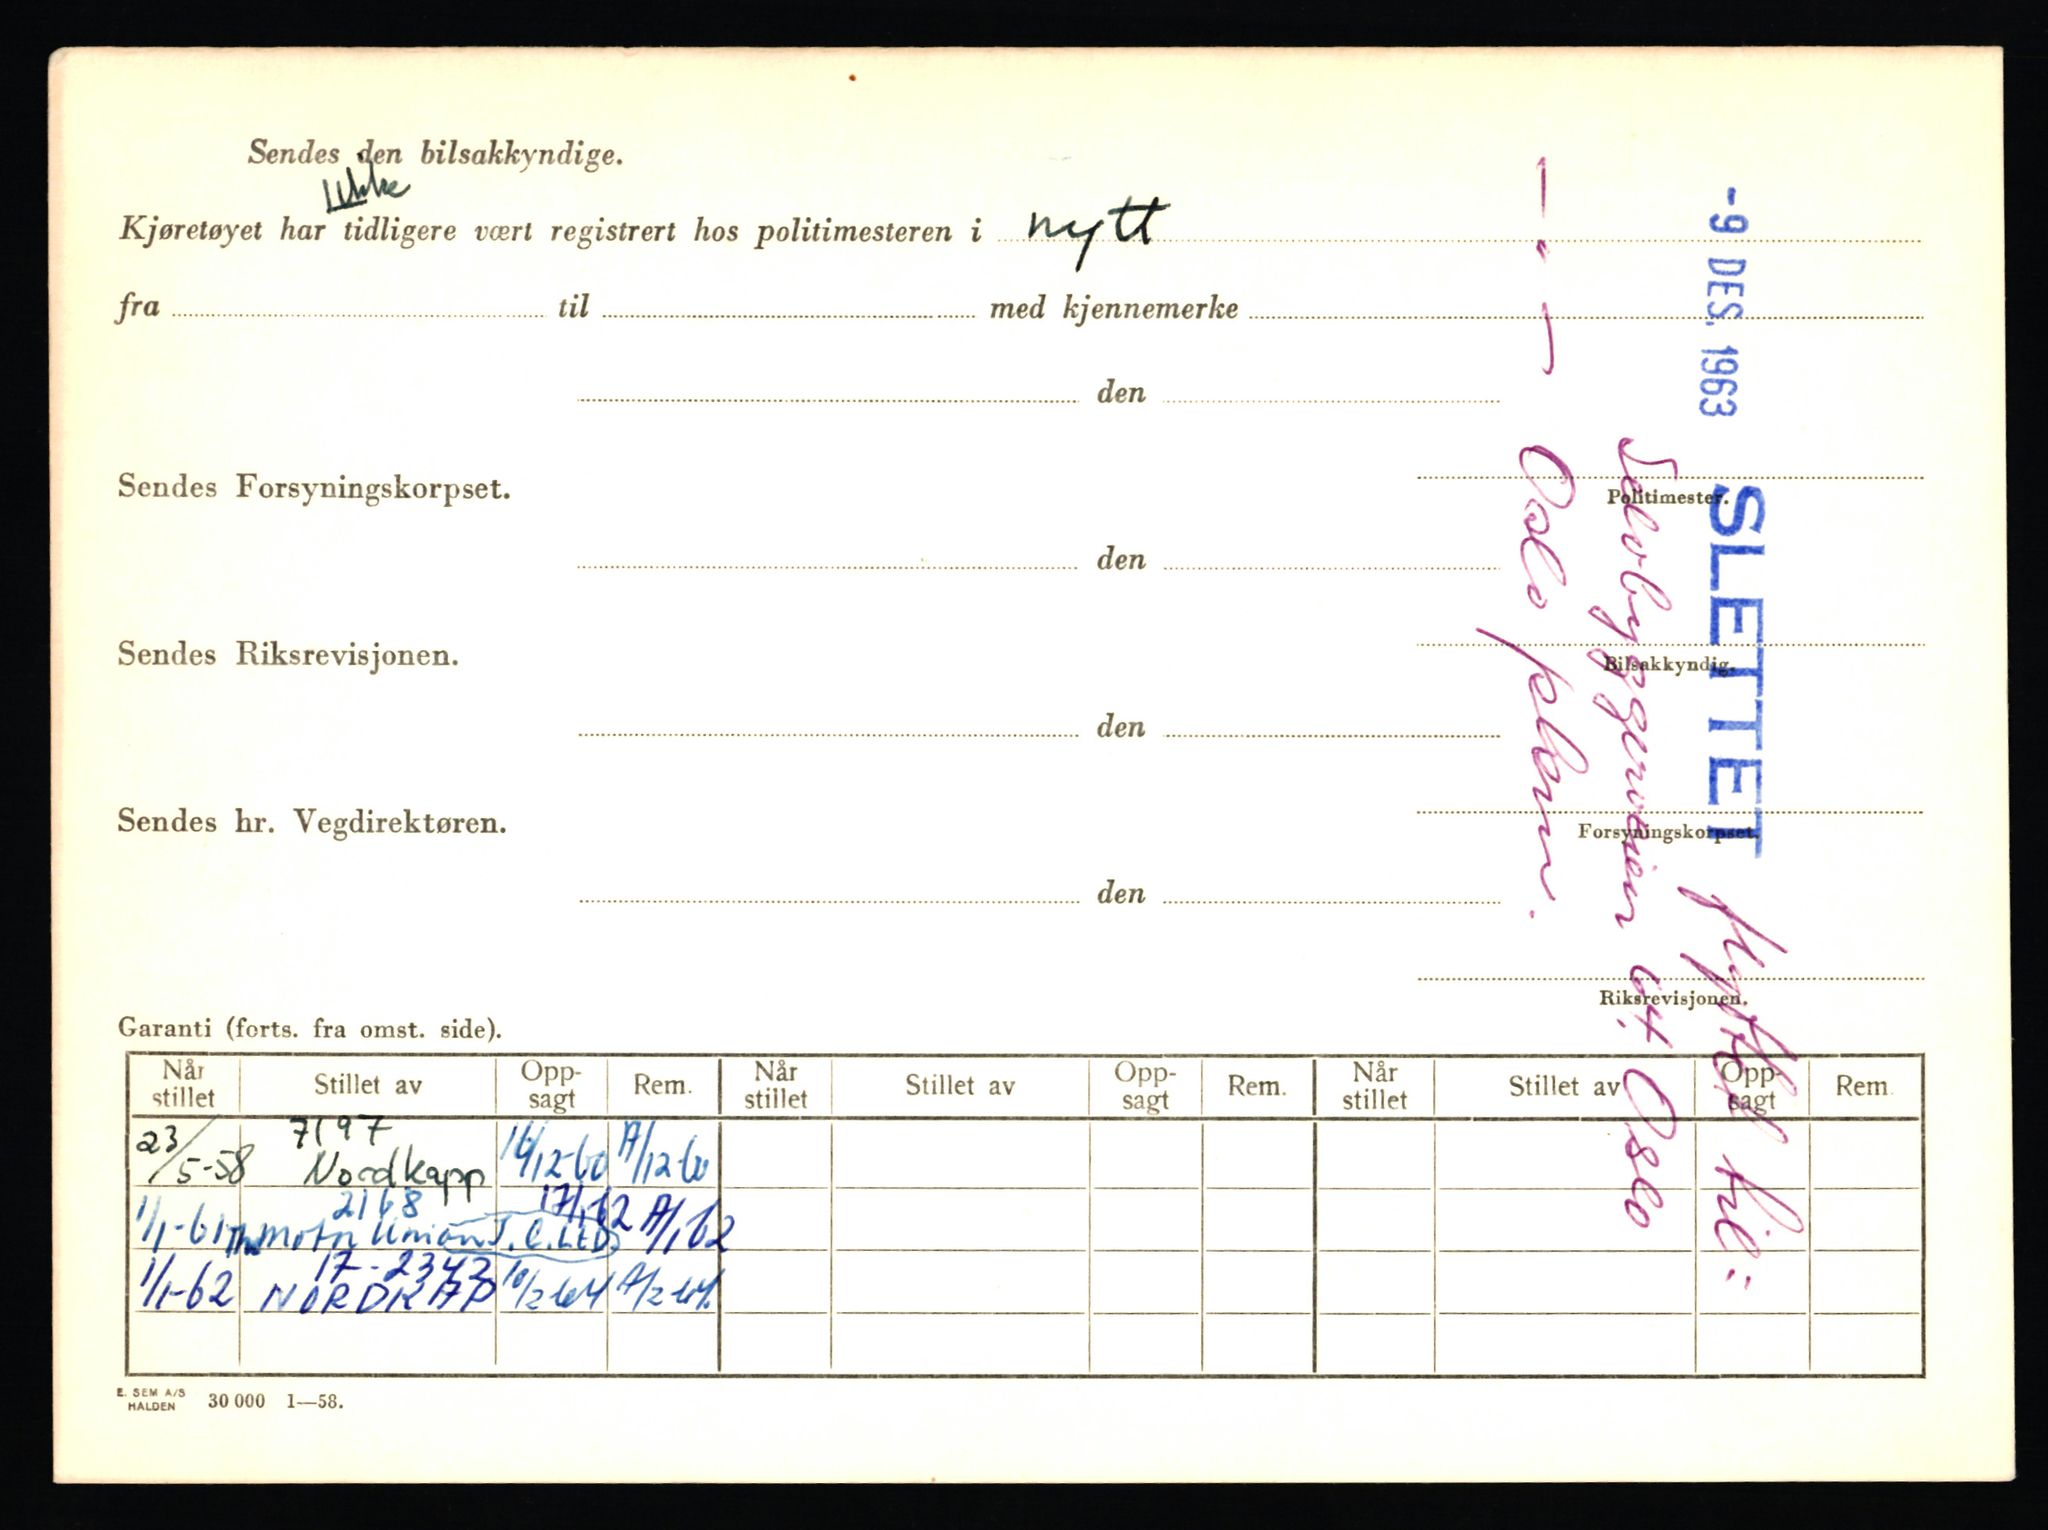 Sendes den bilsakkyndige.
Ikke
Kjøretøyet har tidligere vært registrert hos politimesteren i nytt
fra til med kjennemerke
den
Politimester.
Sendes Forsyningskorpset.
den
Bilsakkyndig.
Sendes Riksrevisjonen.
den
Forsyningskorpset.
Sendes hr. Vegdirektøren.
den
Riksrevisjonen.
-9 DES. 1963 SLETTET flyttet til:
Selvbyggerveien 64. Oslo
— " — Oslo pl.nr.
Garanti (forts. fra omst. side).
Når stillet Stillet av Opp-sagt Rem. Når stillet Stillet av Opp-sagt Rem. Når stillet Stillet av Opp-sagt Rem.
7197
23/5-58 Nordkapp 16/12-60 A/12-60
2168
1/1-61 The Motor Union I.C.LTD. 17/1-62 A/1-62
17-2343
1/1-62 NORDKAP 10/2-64 A/2-64.
E. SEM A/S
HALDEN 30 000 1—58.